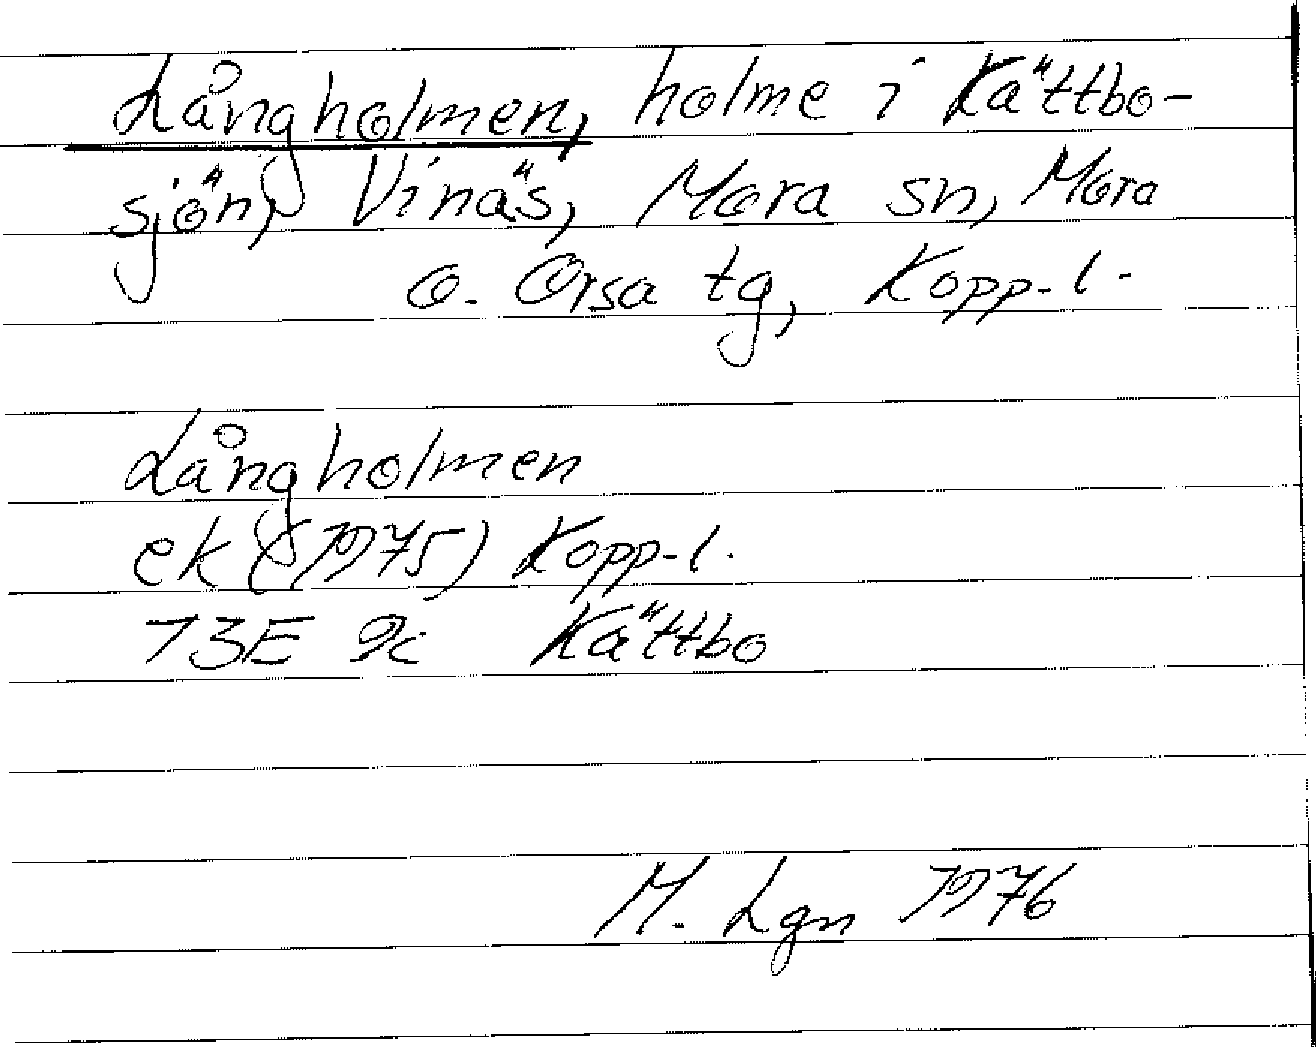 Långholmen, holme i Kättbo-
sjön, Vinäs, Mora sn, Mora
o. Orsa tg, Kopp-l.
Långholmen
ek (1975) Kopp-l.
13E 9c Kättbo
M. Lgn 1976